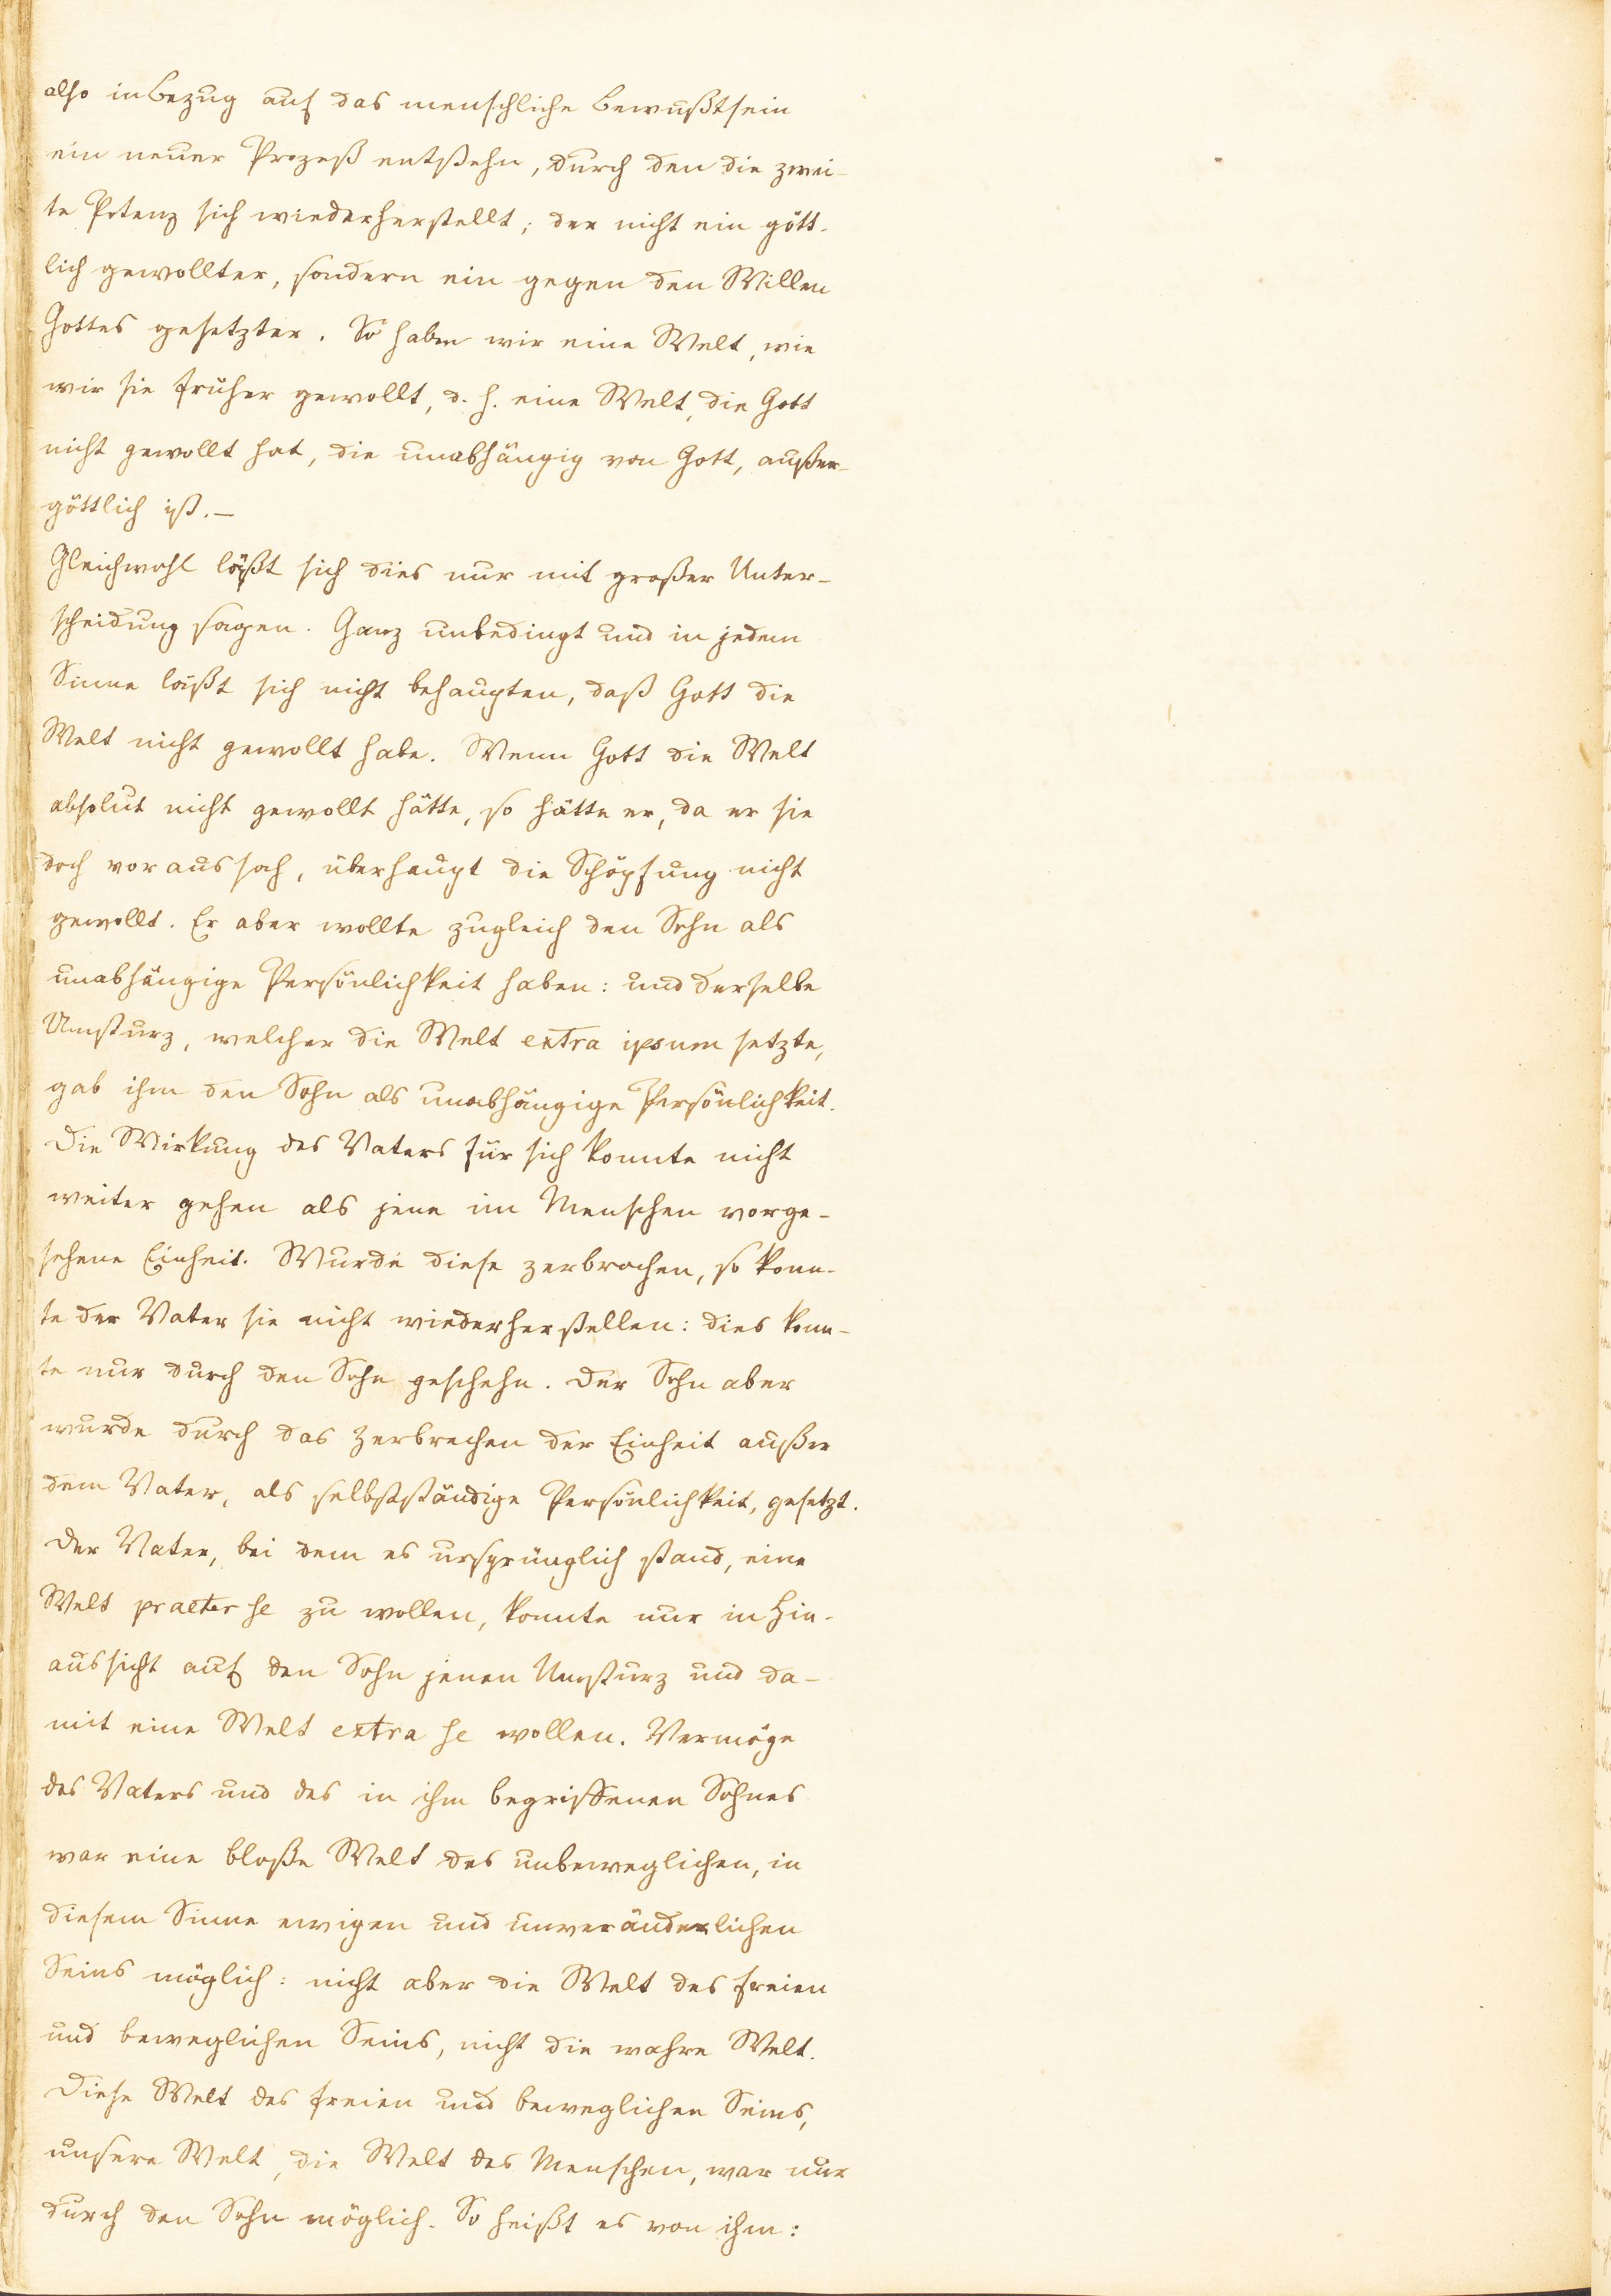 also in Bezug auf das menschliche Bewußtsein
ein neuer Prozeß entstehn, durch den die zwei-
te Potenz sich wiederherstellt; der nicht ein gött-
lich gewollter, sondern ein gegen den Willen
Gottes gesetzter. So haben wir eine Welt, wie
wir sie früher gewollt, d. h. eine Welt, die Gott
nicht gewollt hat, die unabhängig von Gott, außer-
göttlich ist. –
Gleichwohl läßt sich dies nur mit großer Unter-
scheidung sagen. Ganz unbedingt und in jedem
Sinne läßt sich nicht behaupten, daß Gott die
Welt nicht gewollt habe. Wenn Gott die Welt
absolut nicht gewollt hätte, so hätte er, da er sie
doch voraussah, überhaupt die Schöpfung nicht
gewollt. Er aber wollte zugleich den Sohn als
unabhängige Persönlichkeit haben: und derselbe
Umsturz, welcher die Welt extra ipsum setzte,
gab ihm den Sohn als unabhängige Persönlichkeit.
Die Wirkung des Vaters für sich konnte nicht
weiter gehen als jene im Menschen vorge-
sehene Einheit. Wurde diese zerbrochen, so konn-
te der Vater sie nicht wiederherstellen: dies konn-
te nur durch den Sohn geschehn. Der Sohn aber
wurde durch das Zerbrechen der Einheit außer
dem Vater, als selbstständige Persönlichkeit, gesetzt.
Der Vater, bei dem es ursprünglich stand, eine
Welt praeter se zu wollen, konnte nur in Hin-
aussicht auf den Sohn jenen Umsturz und da-
mit eine Welt extra se wollen. Vermöge
des Vaters und des in ihm begriffenen Sohnes
war eine bloße Welt des unbeweglichen, in
diesem Sinne ewigen und unveränderlichen
Seins möglich: nicht aber die Welt des freien
und beweglichen Seins, nicht die wahre Welt.
Diese Welt des freien und beweglichen Seins,
unsere Welt, die Welt des Menschen, war nur
durch den Sohn möglich. So heißt es von ihm: